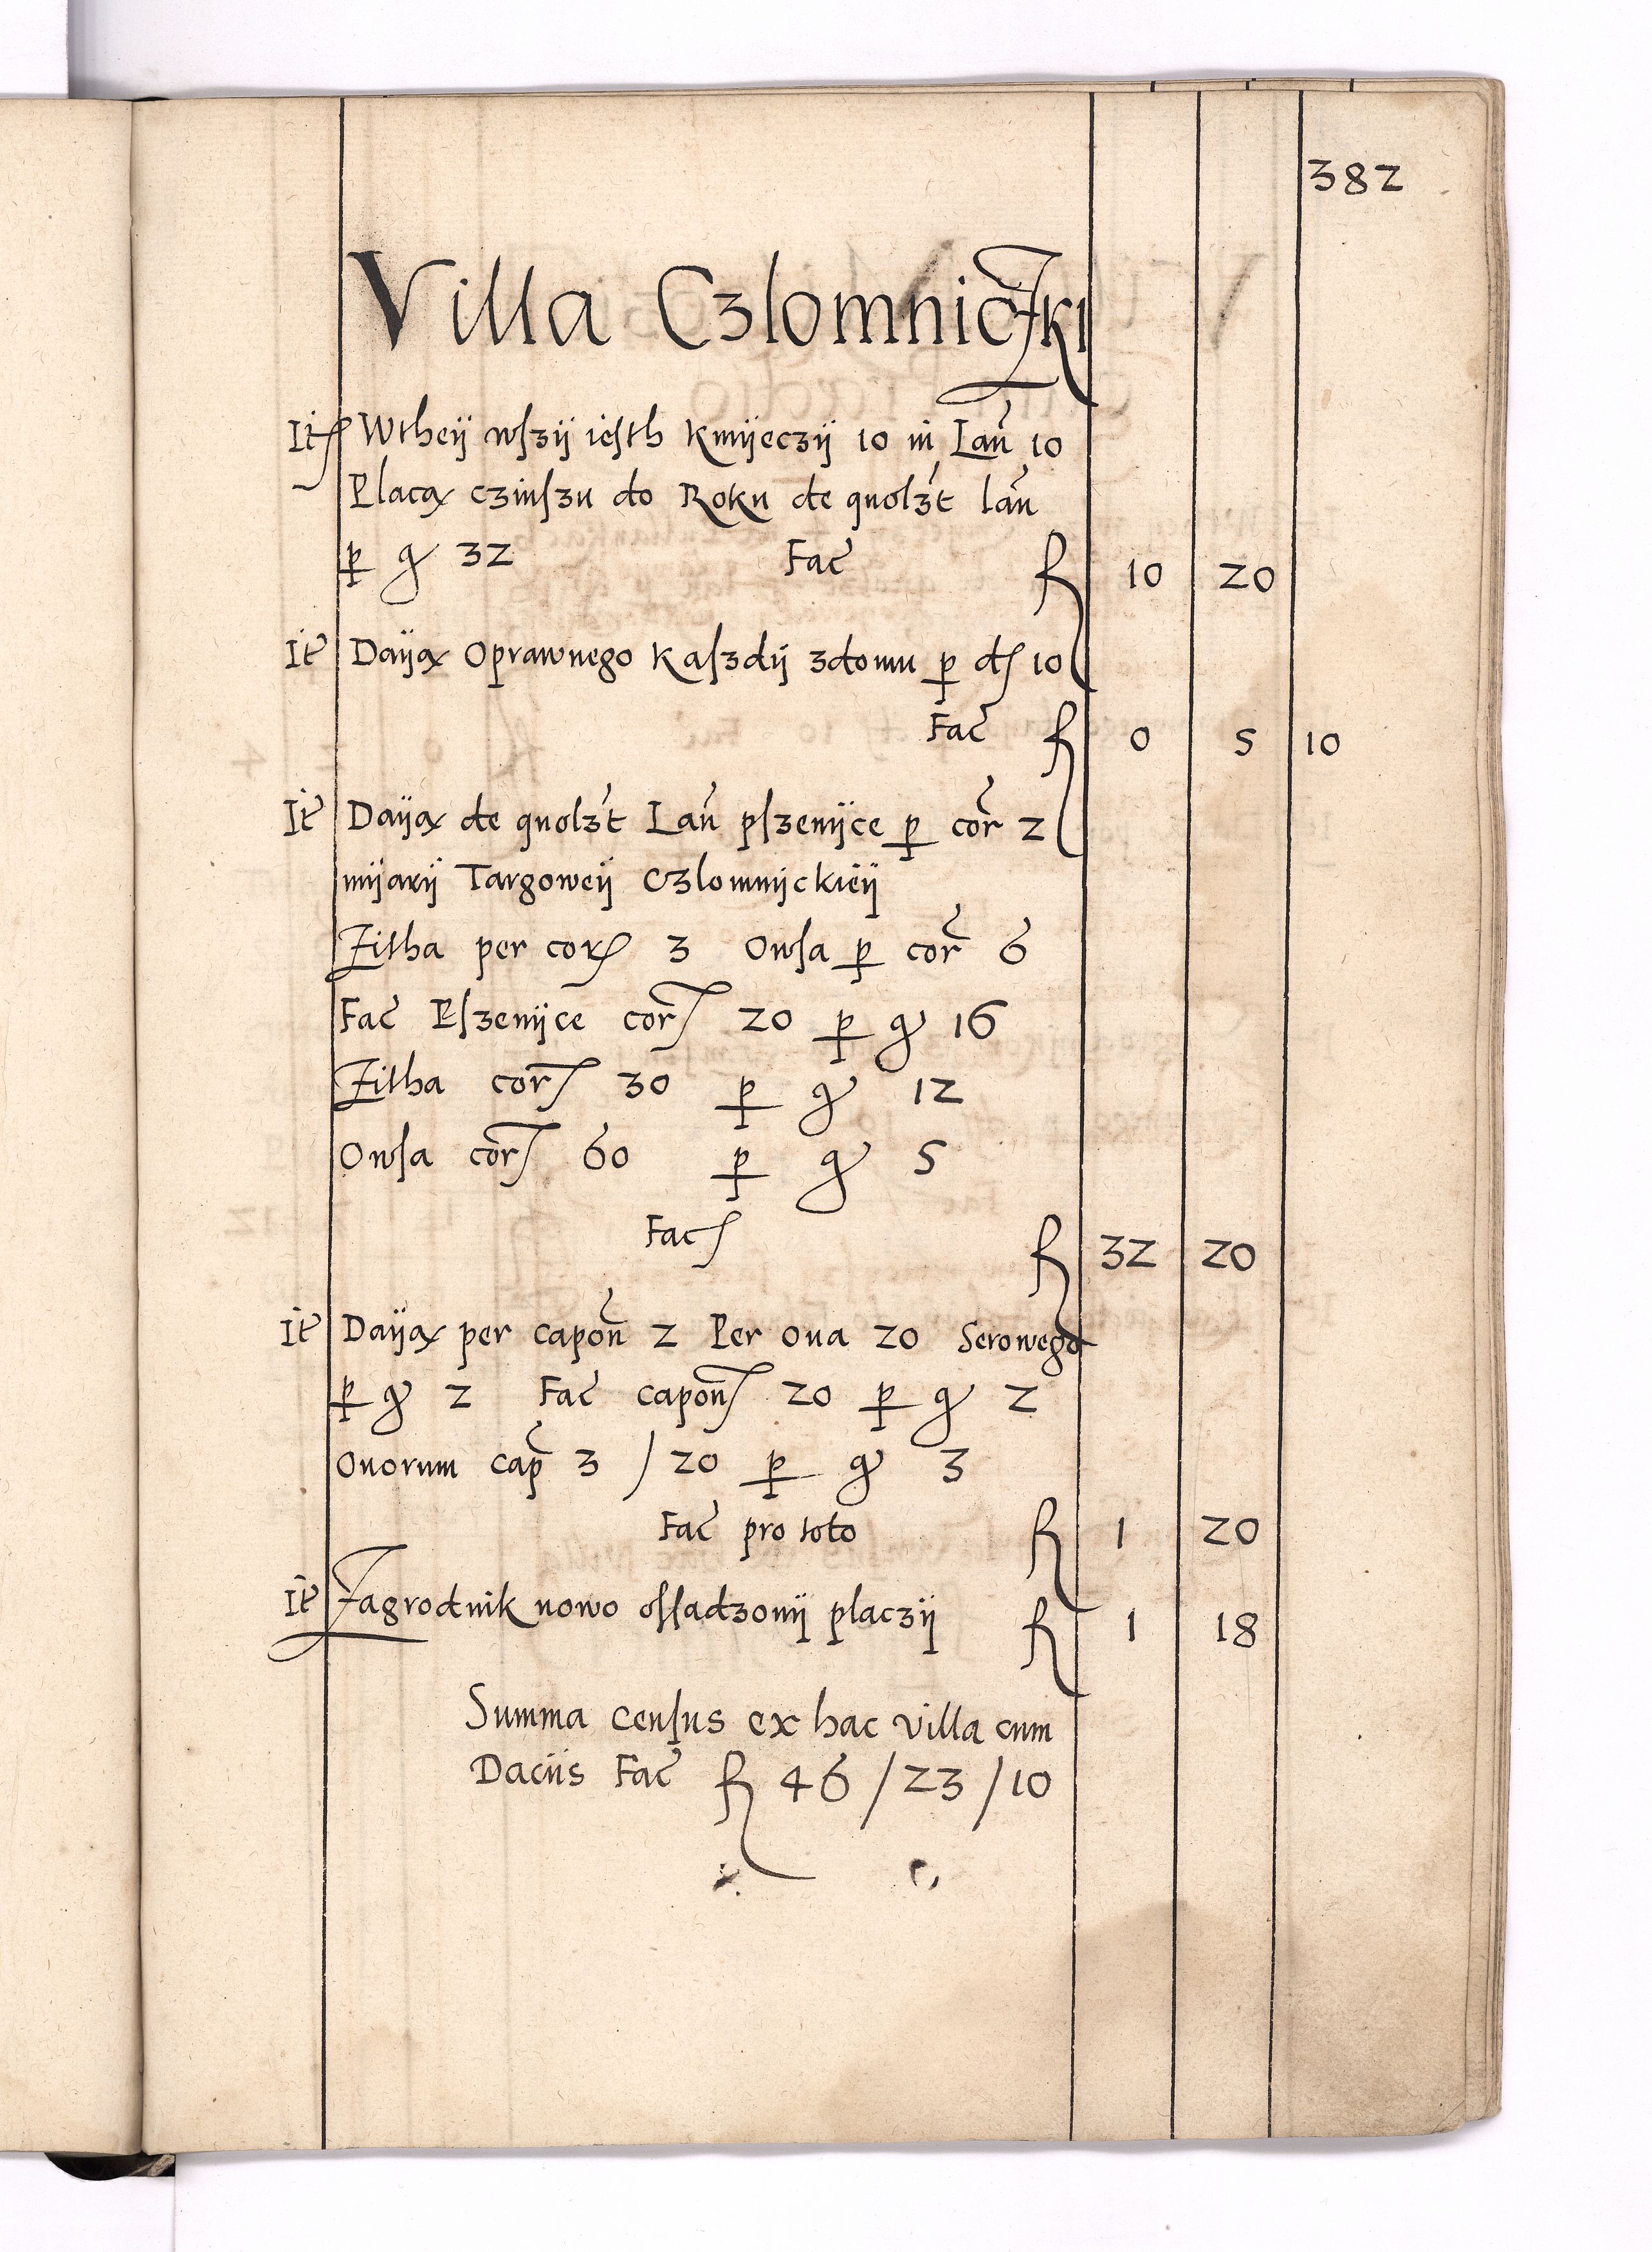 382
Villa Czlomniczki
It Wtheÿ wſzÿ ieſth kmÿeczÿ 10 in Lan 10
Placą czinſzu do Roku de quolzt lan
p g 32 Fac f 10 20
It Daÿą Oprawnego kaſzdÿ zdomu p d 10
Fac f 0 5 10
It Daÿą de quolzt Lan pſzenÿce p cor 2
mÿarÿ Targoweÿ Czlomnÿckieÿ
Zitha per cor 3 Owſa p cor 6
Fac Pſzenÿce cor 20 p g 16
Zitha cor 30 p g 12
Owſa cor 60 p g 5
Fac f 32 20
It Daÿą per capon 2 Per oua 20 Serowego
p g 2 Fac capon 20 p g 2
Ouorum cap 3 / 20 p g 3
Fac pro toto f 1 20
It Zagrodnik nowo oſſadzonÿ placzÿ f 1 18
Summa cenſus ex hac villa cum
Daciis Fac f 46 / 23 / 10